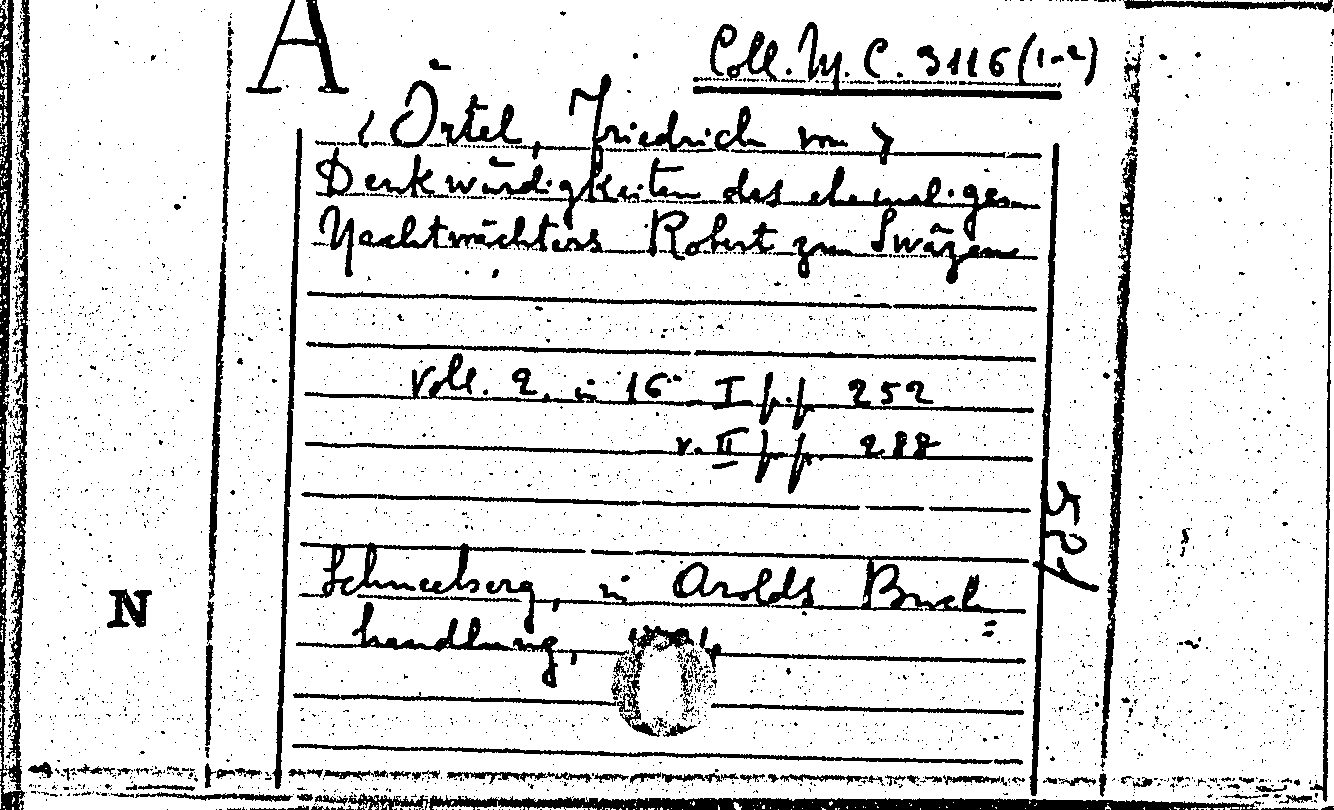 A
Coll. M. C. 3116 (1-2)
< Örtel, Friedrich von >
Denkwürdigkeiten des ehemaligen
Nachtwächters Robert zu Swäzen
Voll. 2. in 16° I pp. 252
v. II pp. 288
504
Schneeberg, in Arolds Buch=
N
handlung,